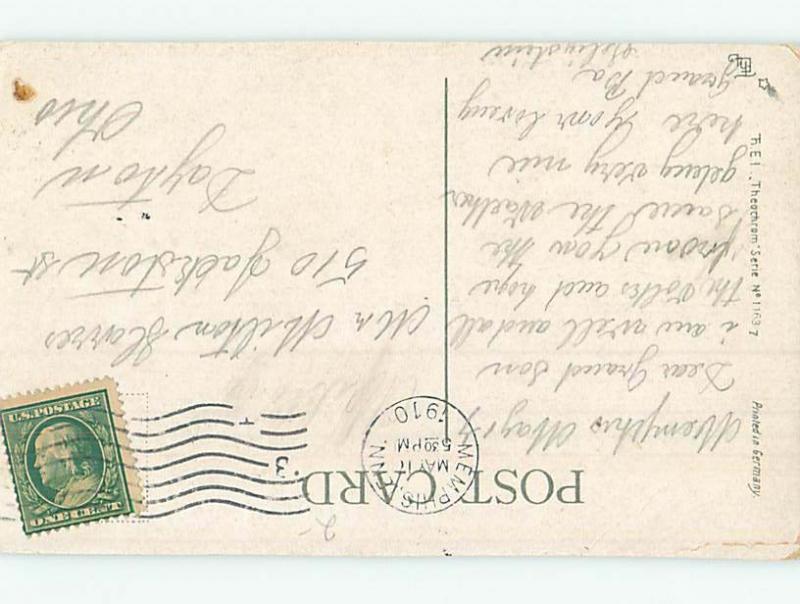 POST CARD.
MEMPHIS, TENN.
MAY 17
530 PM
1910
3
U.S. POSTAGE
ONE CENT
Memphis May 17
Dear Grand Son
i am well and all
the folks and hope
you the
same the Weather
very nice
here your loving
Grand Pa
Mr Milton
510 Jackson st
Dayton
Ohio
Printed in Germany.
T.E.L. Theochrom" Serie Nº 1163 7